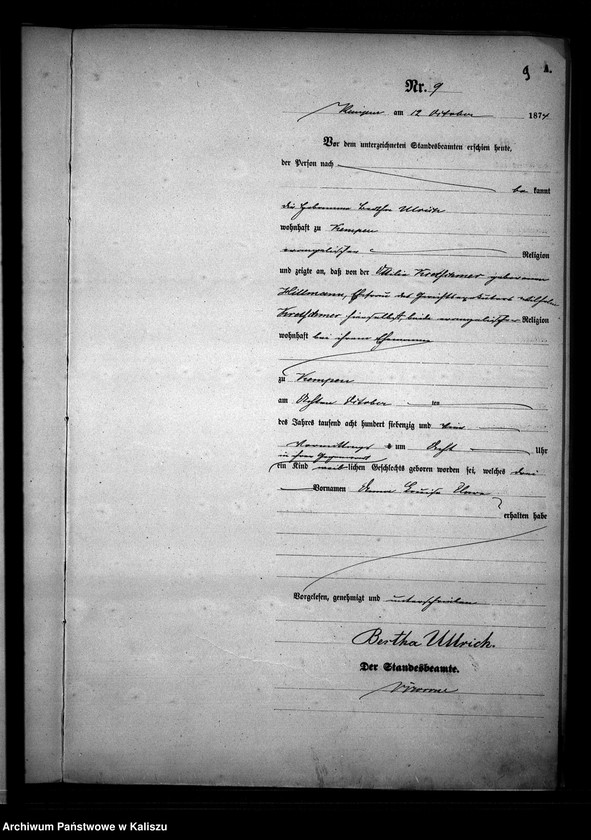 9 A.
Nr. 9
Kempen am 12 October 1874
Vor dem unterzeichneten Standesbeamten erschien heute,
der Person nach
be kannt
die Hebamme Bertha Ullrich
wohnhaft zu Kempen
evangelischer Religion
und zeigte an, daß von der Ottilie geborenen
Hillmann, Ehefrau des
hierselbst, beide evangelischer Religion
wohnhaft bei ihrem Ehemanne
zu Kempen
am Achten October ten
des Jahres tausend acht hundert siebenzig und vier
Vormittags um Acht Uhr
in ihrer Gegenwart
ein Kind weib lichen Geschlechts geboren worden sei, welches drei
Vornamen Anna Louise Clara
erhalten habe
Vorgelesen, genehmigt und unterschrieben
Bertha Ullrich.
Der Standesbeamte.
Archiwum Państwowe w Kaliszu